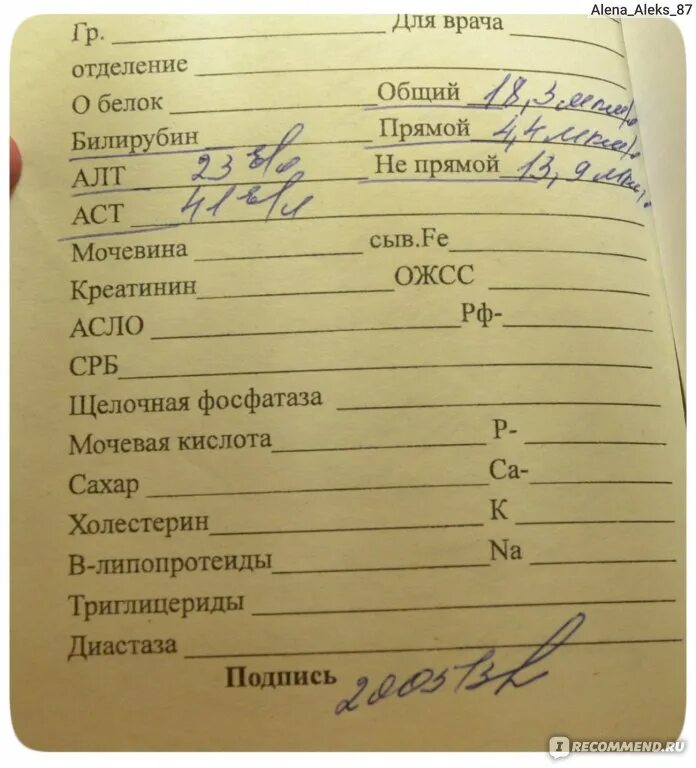 Alena_Aleks_87
Гр. Для врача
отделение
О белок Общий 18,3 мкмл
Билирубин Прямой 4,4 мкмл
АЛТ 23 Не прямой 13,9
АСТ 41
Мочевина сыв.Fe
Креатинин ОЖСС
АСЛО Рф-
СРБ
Щелочная фосфатаза
Мочевая кислота Р-
Сахар Са-
Холестерин К
В-липопротеиды Na
Триглицериды
Диастаза
Подпись
IRECOMMEND.RU